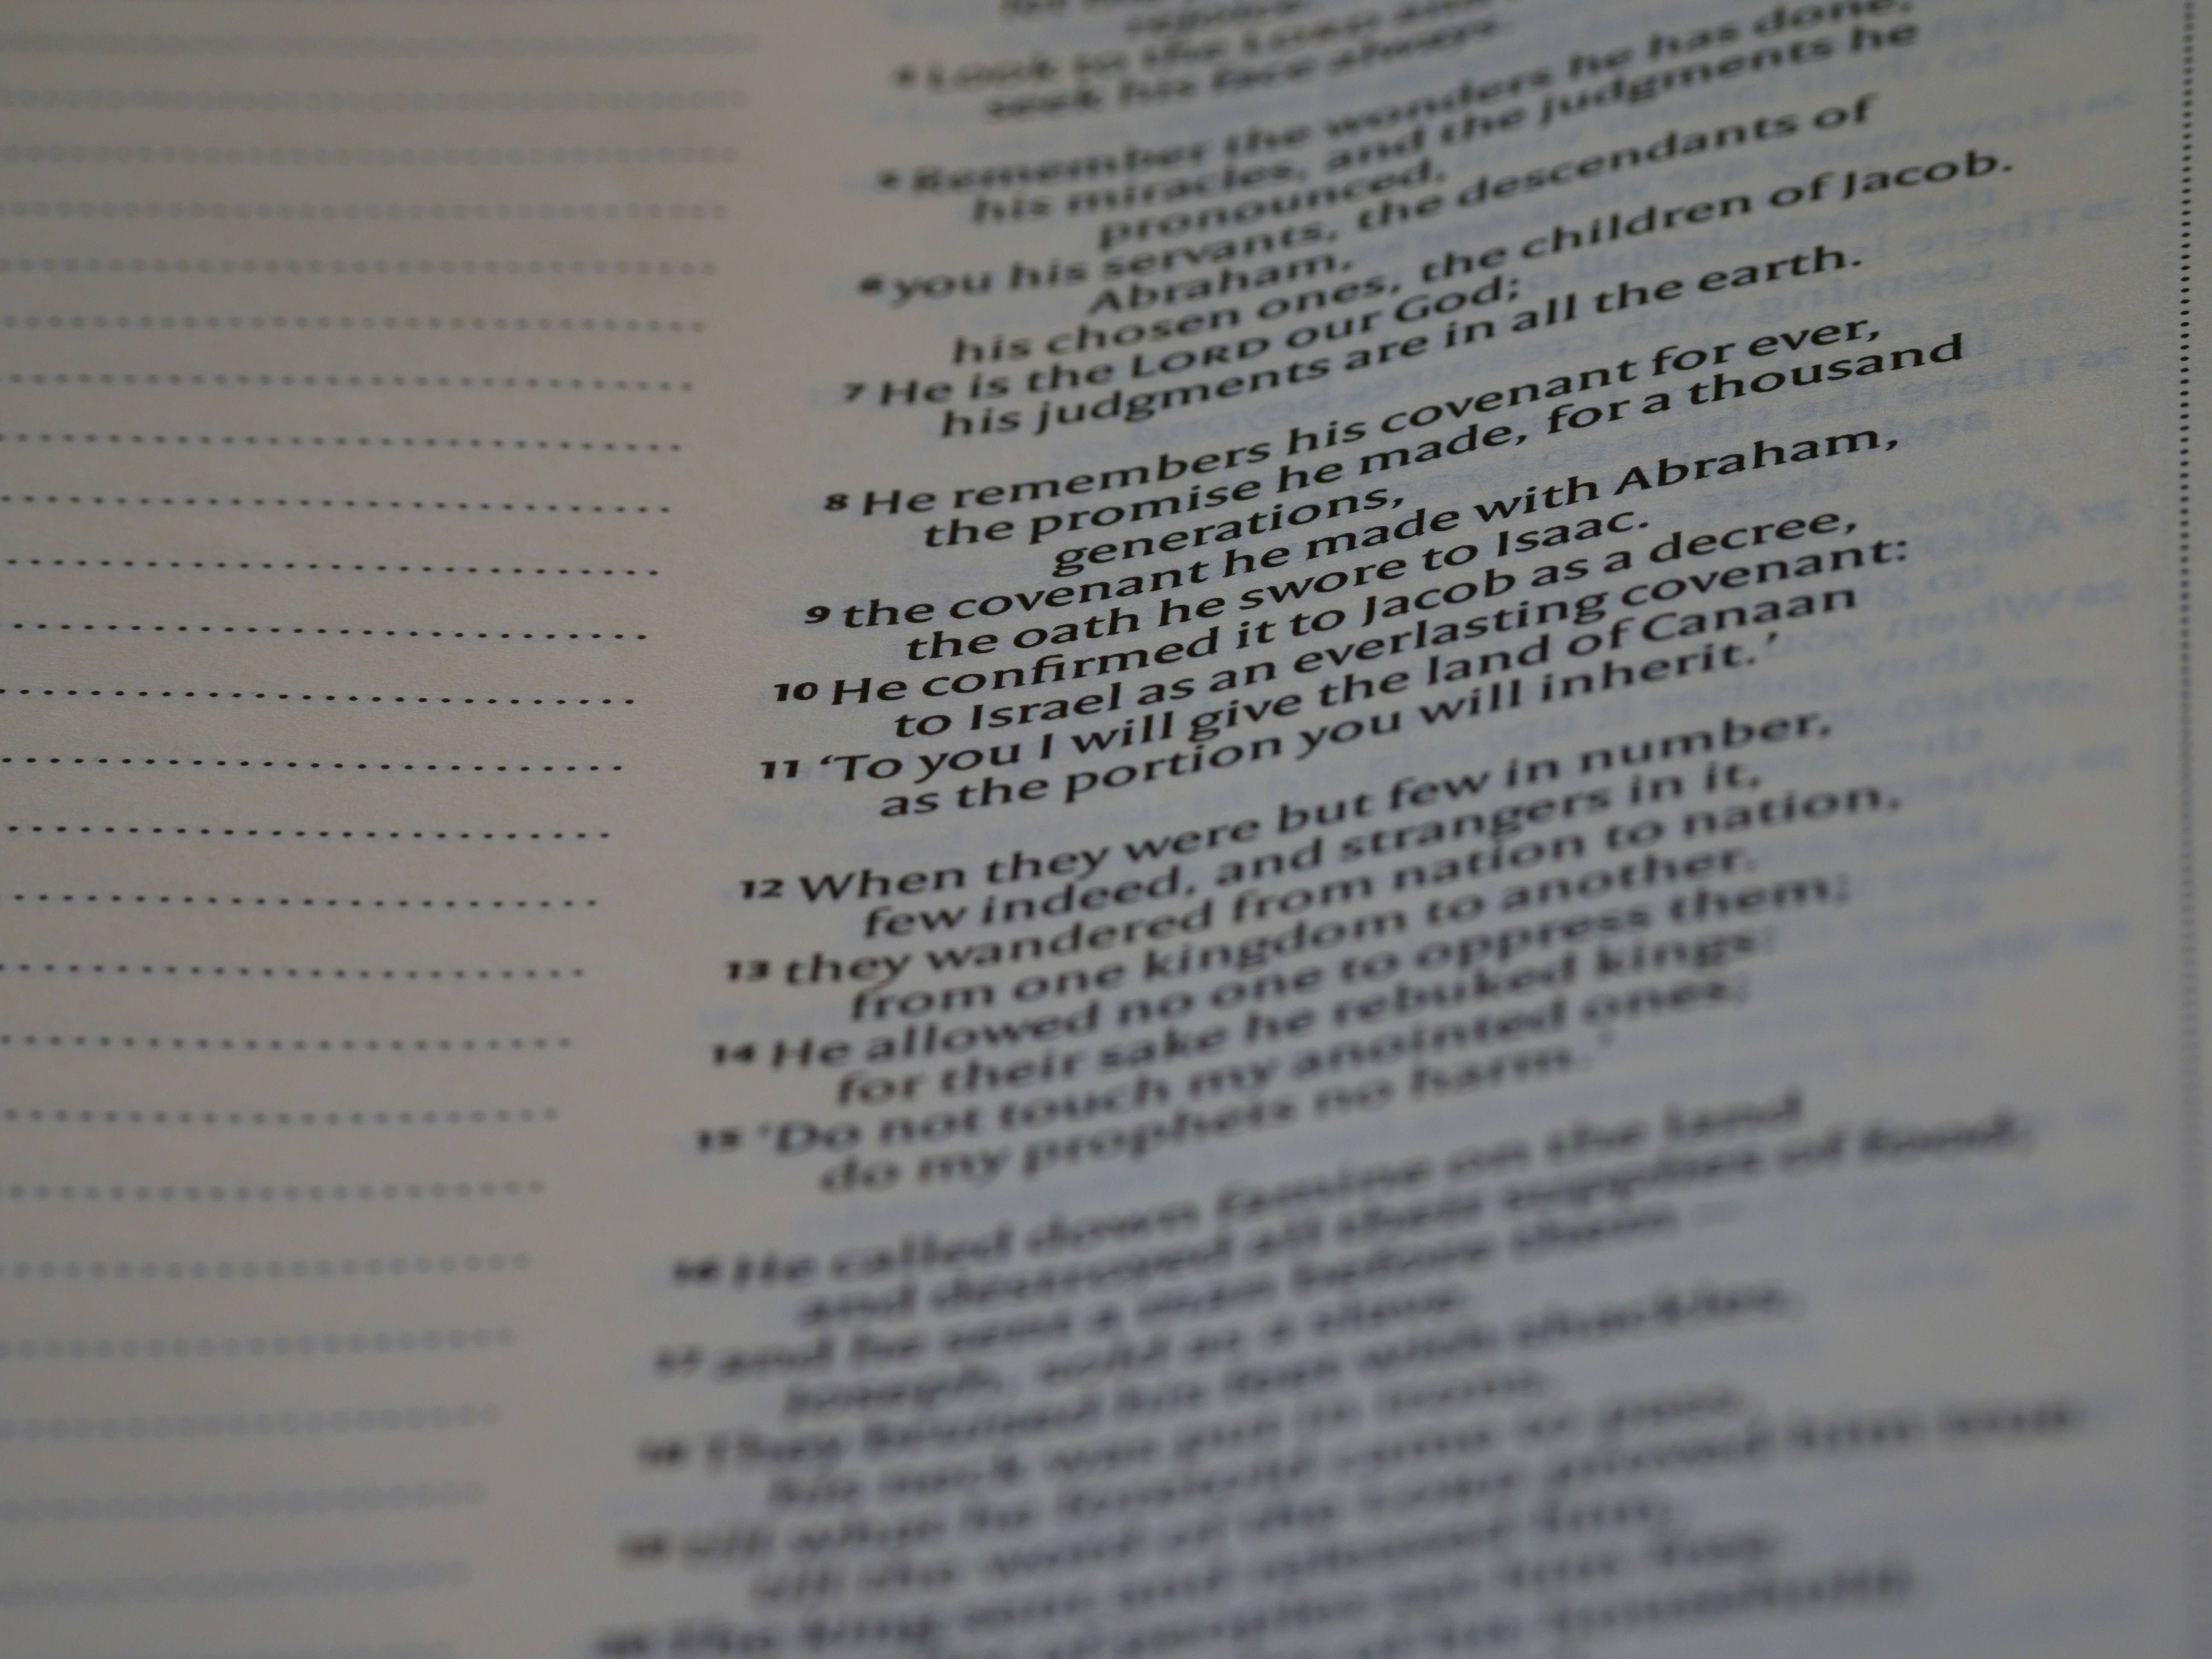 4 Look to the LORD and
seek his face always.
5 Remember the wonders he has done,
his miracles, and the judgments he
pronounced,
6 you his servants, the descendants of
Abraham,
his chosen ones, the children of Jacob.
7 He is the LORD our God;
his judgments are in all the earth.
8 He remembers his covenant for ever,
the promise he made, for a thousand
generations,
9 the covenant he made with Abraham,
the oath he swore to Isaac.
10 He confirmed it to Jacob as a decree,
to Israel as an everlasting covenant:
11 ‘To you I will give the land of Canaan
as the portion you will inherit.’
12 When they were but few in number,
few indeed, and strangers in it,
13 they wandered from nation to nation,
from one kingdom to another.
14 He allowed no one to oppress them;
for their sake he rebuked kings:
15 ‘Do not touch my anointed ones;
do my prophets no harm.’
16 He called down famine on the land
and destroyed all their supplies of food;
17 and he sent a man before them –
Joseph, sold as a slave.
18 They bruised his feet with shackles,
his neck was put in irons,
19 till what he foretold came to pass,
till the word of the LORD proved him true.